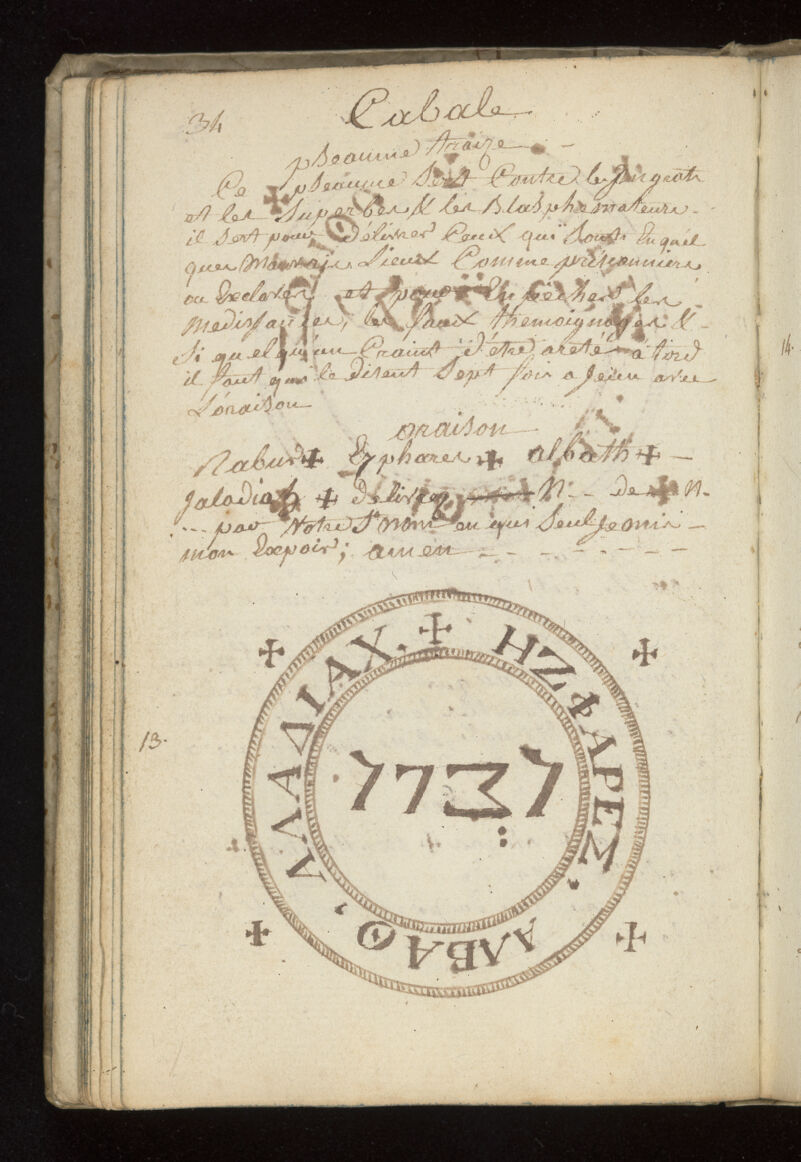 34
Cabale
pseaume traize
Ce pseaume Sert Contre le Jngrats
et les Superbes & les Blasphemateurs
il sert pour délivrer Ceux qui Sont En quel
ques Mauvais Lieux Comme prisonniers
ou Exclaves et pour Enpecher les
Medisances, les faux themoignages &
Si quelqu'un Craint d'etre areté a tord
il faut qu'i le disent Sept fois a Jeun avec
L'oraison
oraison
Nabur ✠ Ezphares ✠ albath ✠
Jaladiah ✠ délivrez N-- de ✠ N.
... par Votre St nom en qui Seul Je mis
mon Expoir; amen
13.
✠ ΗΖΦΑΡΕΣ. ΑΛΒΑΘ, ΑΛΑΔΙΑΧ.